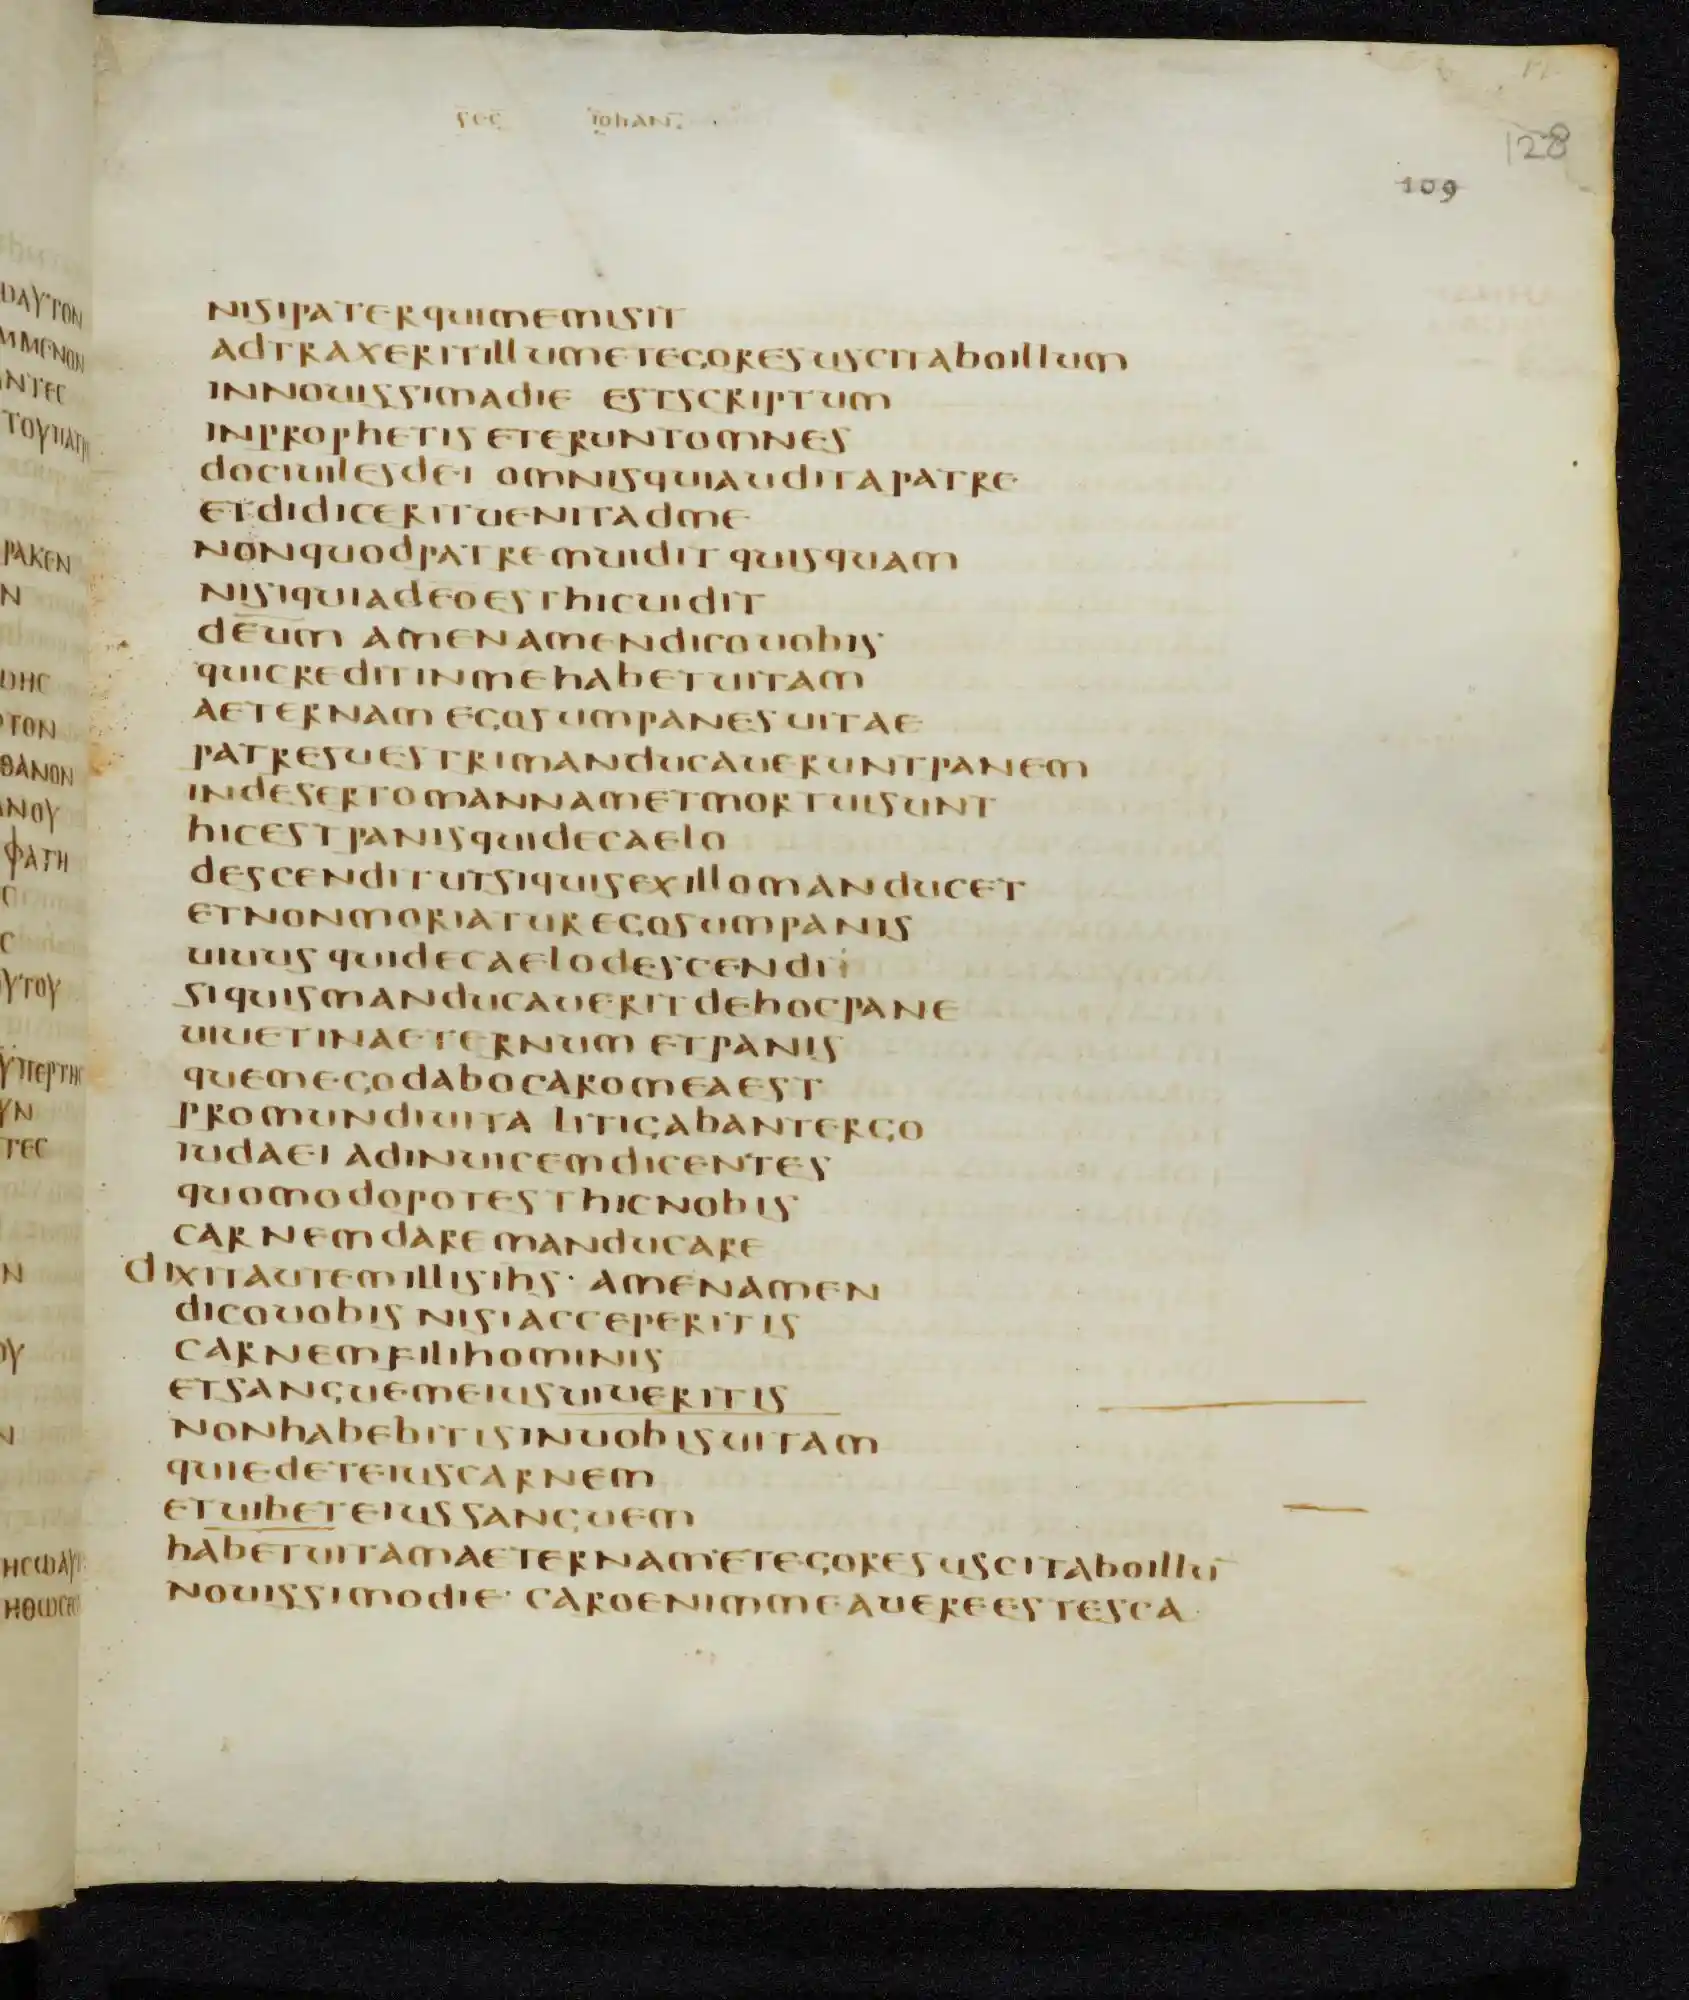 sec iohan
128
109
nisipaterquimemisit
adtraxeritillumetegoresuscitaboillum
innouissimadie estscriptum
inprophetis eteruntomnes
dociuilesdei omnisquiauditapatre
etdidicerituenitadme
nonquodpatremuidit quisquam
nisiquiadeoesthicuidit
deum amenamendicouobis
quicreditinmehabetuitam
aeternam egosumpanesuitae
patresuestrimanducaueruntpanem
indesertomannametmortuisunt
hicestpanisquidecaelo
descenditutsiquisexillomanducet
etnonmoriaturegosumpanis
uiuus quidecaelodescendit
siquismanducaueritdehocpane
uiuetinaeternum etpanis
quemegodabocaromeaest
promundiuita litigabantergo
iudaei adinuicemdicentes
quomodopotesthicnobis
carnemdaremanducare
dixitautemillisihs· amenamen
dicouobis nisiacceperitis
carnemfilihominis
etsanguemeiusuiueritis
nonhabebitisinuobisuitam
quiedeteiuscarnem
etuibeteiussanguem
habetuitamaeternam·etegoresuscitaboillū
nouissimodie· caroenimmeauereestesca